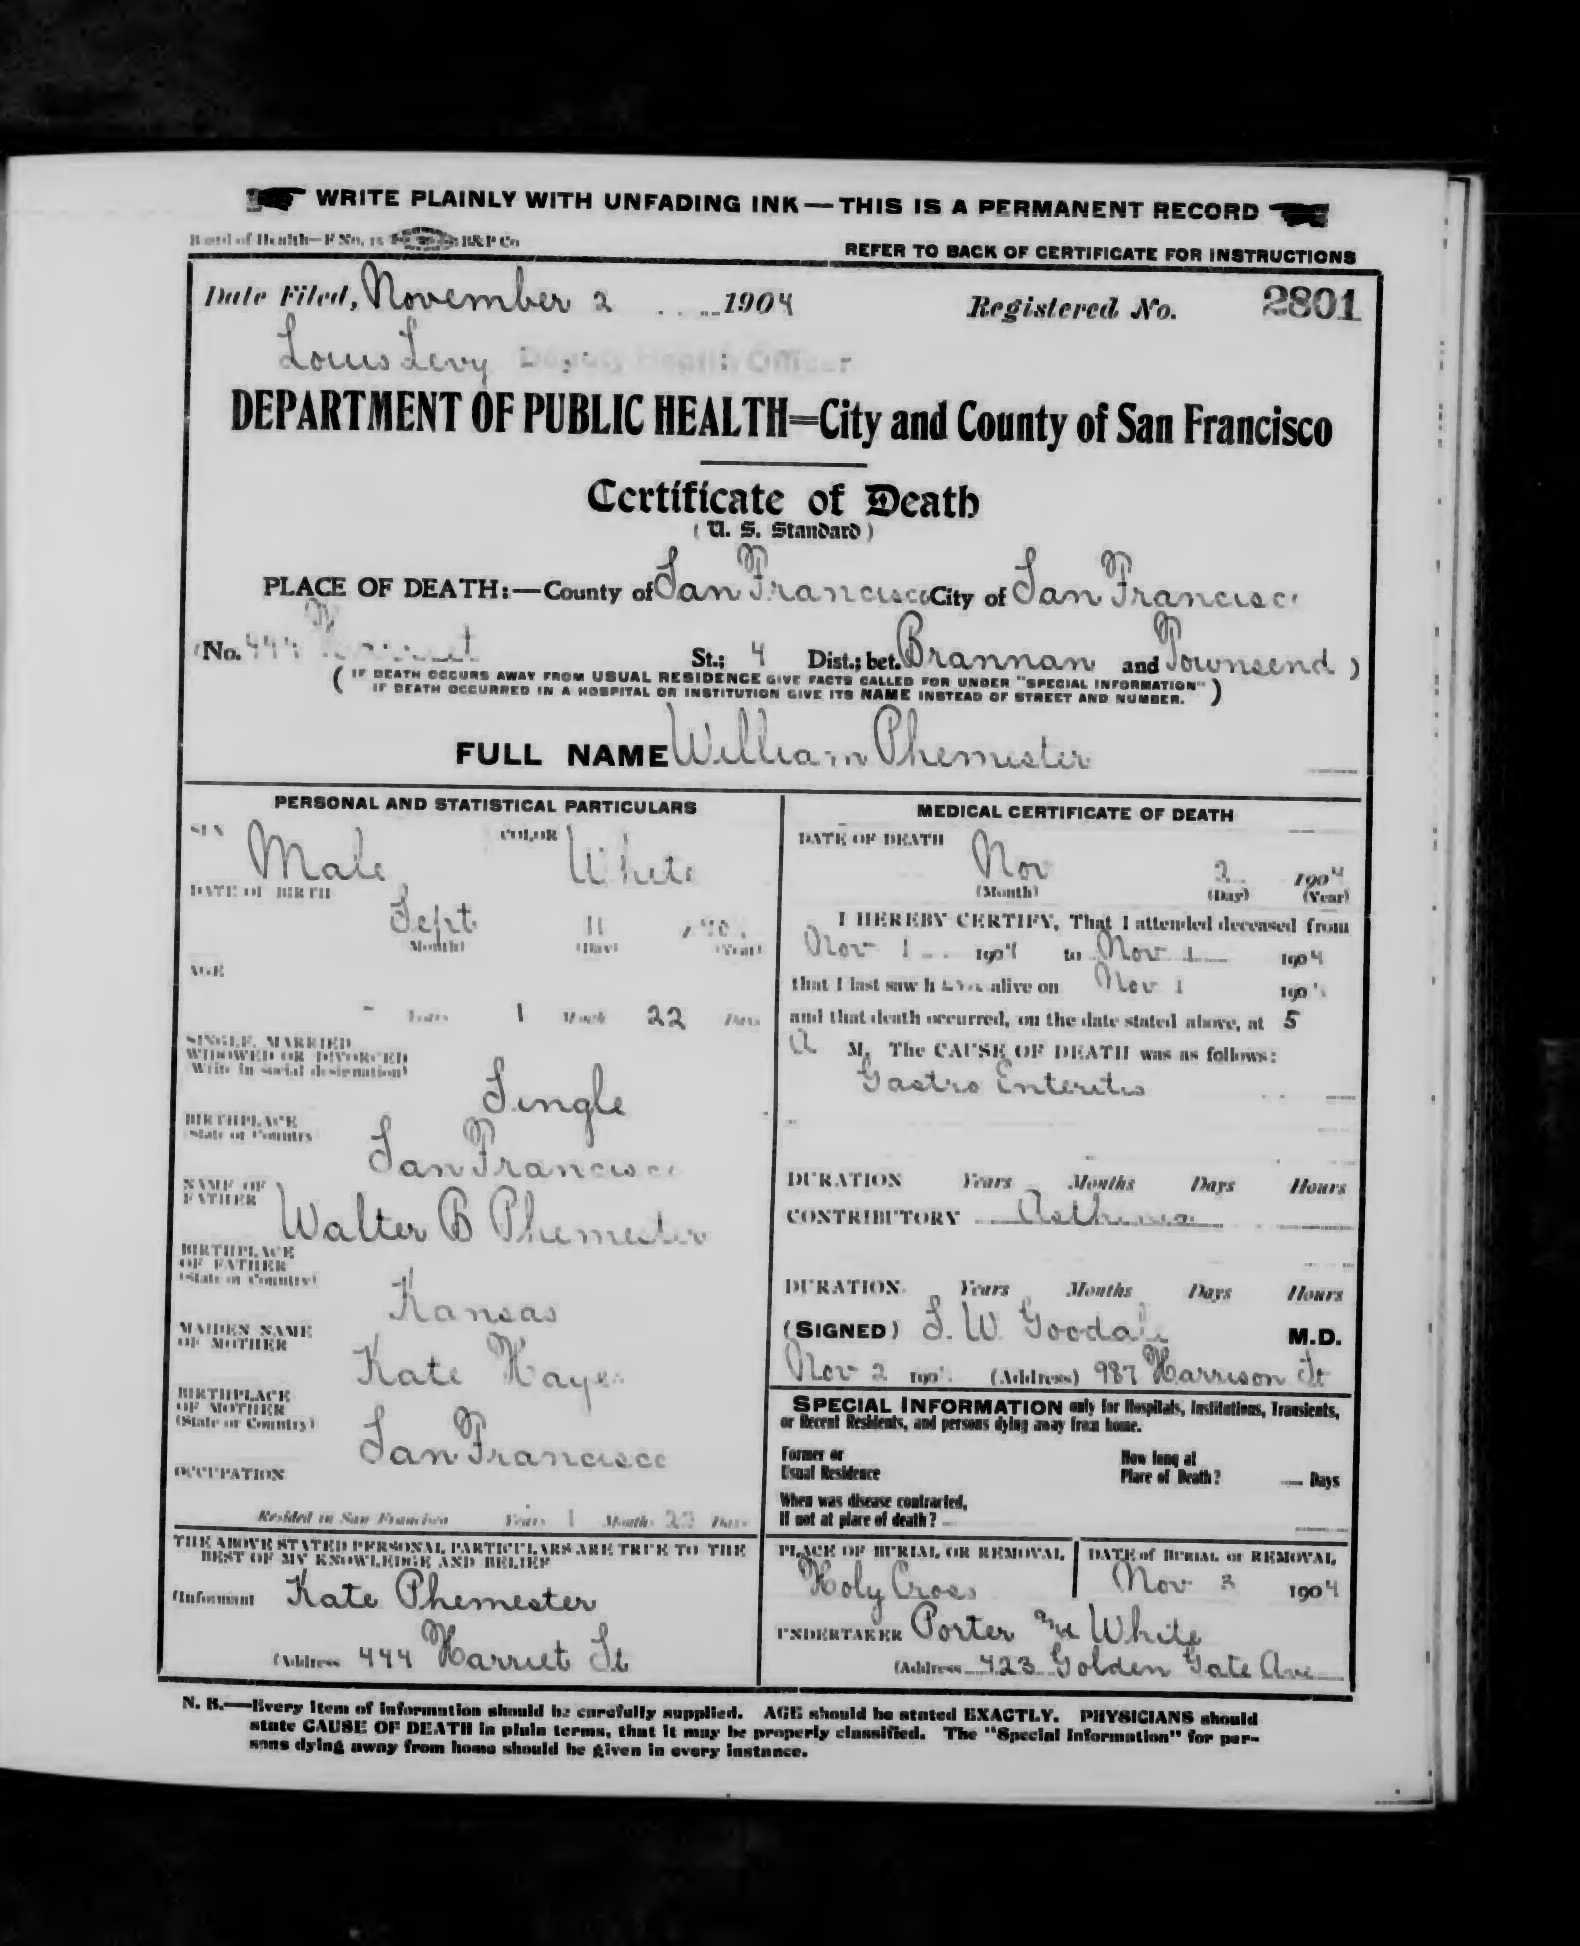 WRITE PLAINLY WITH UNFADING INK—THIS IS A PERMANENT RECORD
Board of Health—F No. 15 B&P Co
REFER TO BACK OF CERTIFICATE FOR INSTRUCTIONS
Date Filed, November 2 1904 Registered No. 2801
Louis Levy Deputy Health Officer
DEPARTMENT OF PUBLIC HEALTH=City and County of San Francisco
Certificate of Death
(U. S. Standard)
PLACE OF DEATH:—County of San Francisco City of San Francisco
(No. 444 Harriet St.; 4 Dist.; bet. Brannan and Townsend )
( IF DEATH OCCURS AWAY FROM USUAL RESIDENCE GIVE FACTS CALLED FOR UNDER "SPECIAL INFORMATION"
IF DEATH OCCURRED IN A HOSPITAL OR INSTITUTION GIVE ITS NAME INSTEAD OF STREET AND NUMBER. )
FULL NAME William Phemister
PERSONAL AND STATISTICAL PARTICULARS
SEX Male COLOR White
DATE OF BIRTH
Sept 11
(Month) (Day) (Year)
AGE
- Years 1 Month 22 Days
SINGLE, MARRIED
WIDOWED OR DIVORCED
Write in social designation)
Single
BIRTHPLACE
(State or Country
San Francisco
NAME OF
FATHER
Walter B Phemister
BIRTHPLACE
OF FATHER
(State or Country)
Kansas
MAIDEN NAME
OF MOTHER
Kate Hayes
BIRTHPLACE
OF MOTHER
(State or Country)
San Francisco
OCCUPATION
Resided in San Francisco Years 1 Months 22 Days
THE ABOVE STATED PERSONAL PARTICULARS ARE TRUE TO THE
BEST OF MY KNOWLEDGE AND BELIEF
(Informant Kate Phemester
(Address 444 Harriet St
MEDICAL CERTIFICATE OF DEATH
DATE OF DEATH
Nov 2 1904
(Month) (Day) (Year)
I HEREBY CERTIFY, That I attended deceased from
Nov 1 1904 to Nov 1 1904
that I last saw h alive on Nov 1 190
and that death occurred, on the date stated above, at 5
A M. The CAUSE OF DEATH was as follows:
Gastro Enteritis
DURATION Years Months Days Hours
CONTRIBUTORY Asthenia
DURATION Years Months Days Hours
(SIGNED) S. W. Goodale M.D.
Nov 2 190 (Address) 987 Harrison St
SPECIAL INFORMATION only for Hospitals, Institutions, Transients,
or Recent Residents, and persons dying away from home.
Former or
Usual Residence
How long at
Place of Death? Days
When was disease contracted,
If not at place of death?
PLACE OF BURIAL OR REMOVAL
Holy Cross
DATE of BURIAL or REMOVAL
Nov 3 1904
UNDERTAKER Porter and White
(Address 423 Golden Gate Ave
N. B.—Every item of information should be carefully supplied. AGE should be stated EXACTLY. PHYSICIANS should
state CAUSE OF DEATH in plain terms, that it may be properly classified. The "Special Information" for per-
sons dying away from home should be given in every instance.